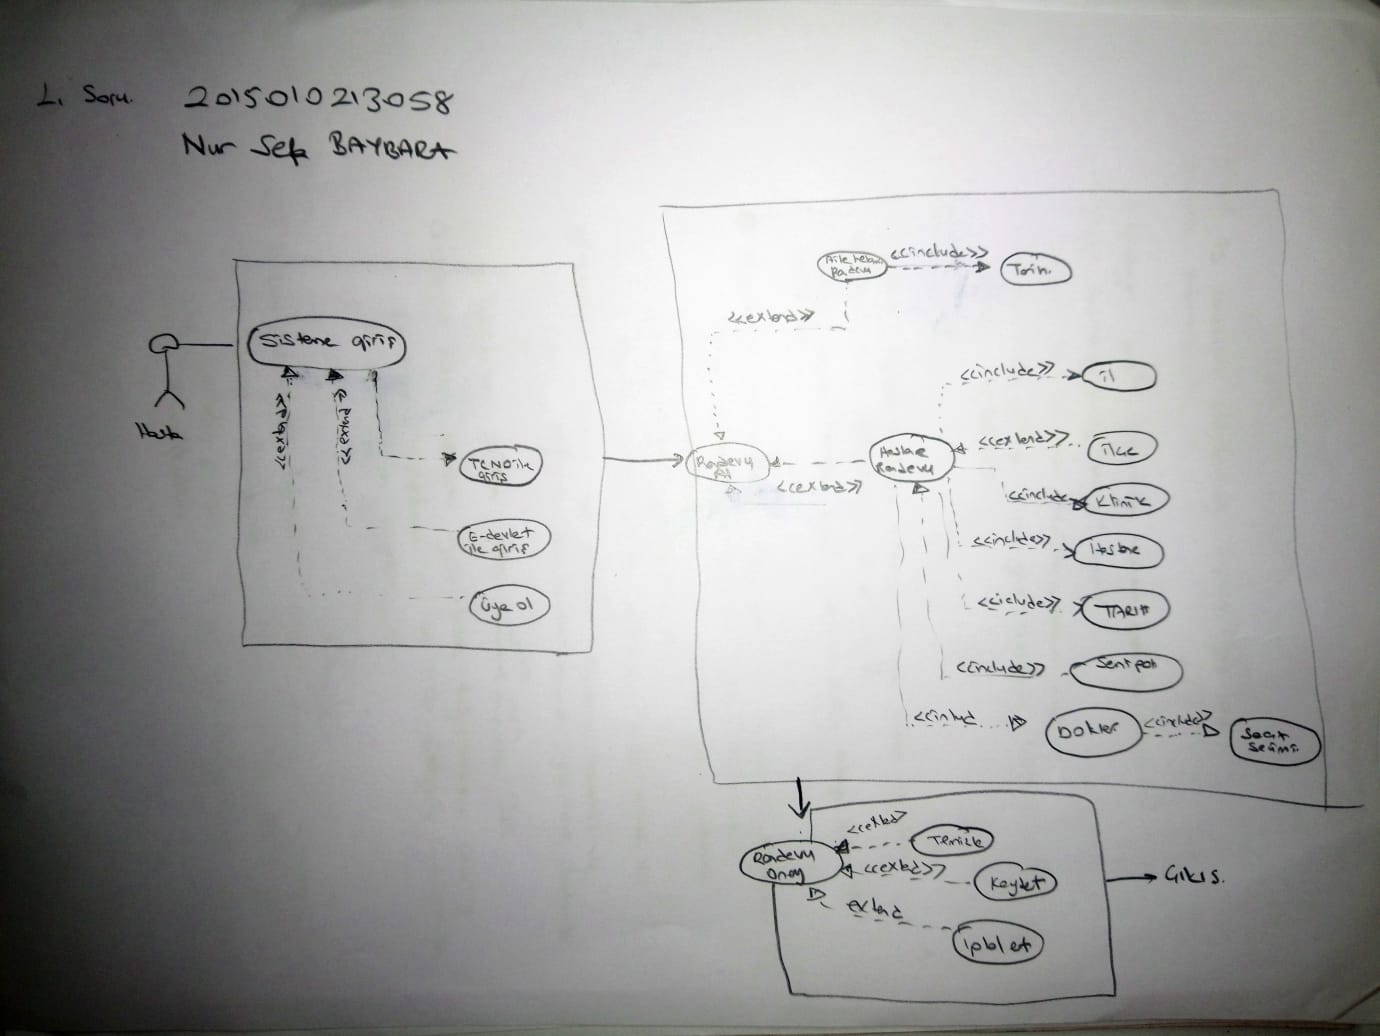 1. Soru. 2015010213058
Nur Sefa BAYBARA
Hasta
Sisteme giriş
<<extend>>
<<extend>>
TCNO ile
giriş
E-devlet
ile giriş
üye ol
Aile hekimi
Randevu
<<include>>
Tarih.
<<extend>>
Randevu
Al
<<extend>>
Hastane
Randevu
<<include>>
il
<<extend>>
ilçe
<<include
Klinik
<<include>>
Hastane
<<include>>
TARİH
<<include>>
<<includ
Doktor
<<include>>
Saat
Seçimi.
Randevu
Onay
<<extend>>
Temizle
<<extend>>
Kaydet
extend
iptal et
Çıkış.